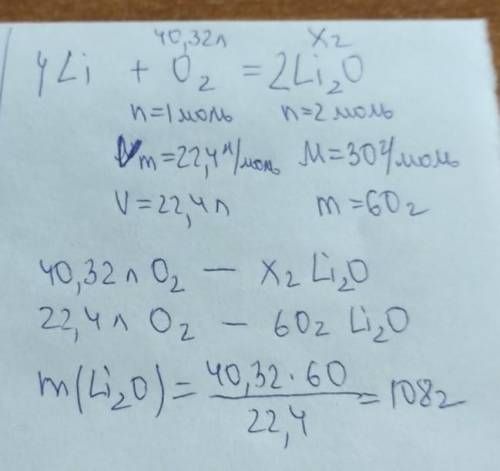 40,32л x г
4Li + O₂ = 2Li₂O
n=1моль n=2 моль
Vm=22,4л/моль M=30г/моль
V=22,4л m=60г
40,32л O₂ — x г Li₂O
22,4л O₂ — 60г Li₂O
m(Li₂O) = 40,32·60 / 22,4 = 108г